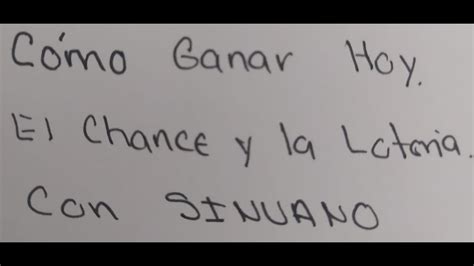 Cómo Ganar Hoy.
El Chance y la Loteria.
Con SINUANO